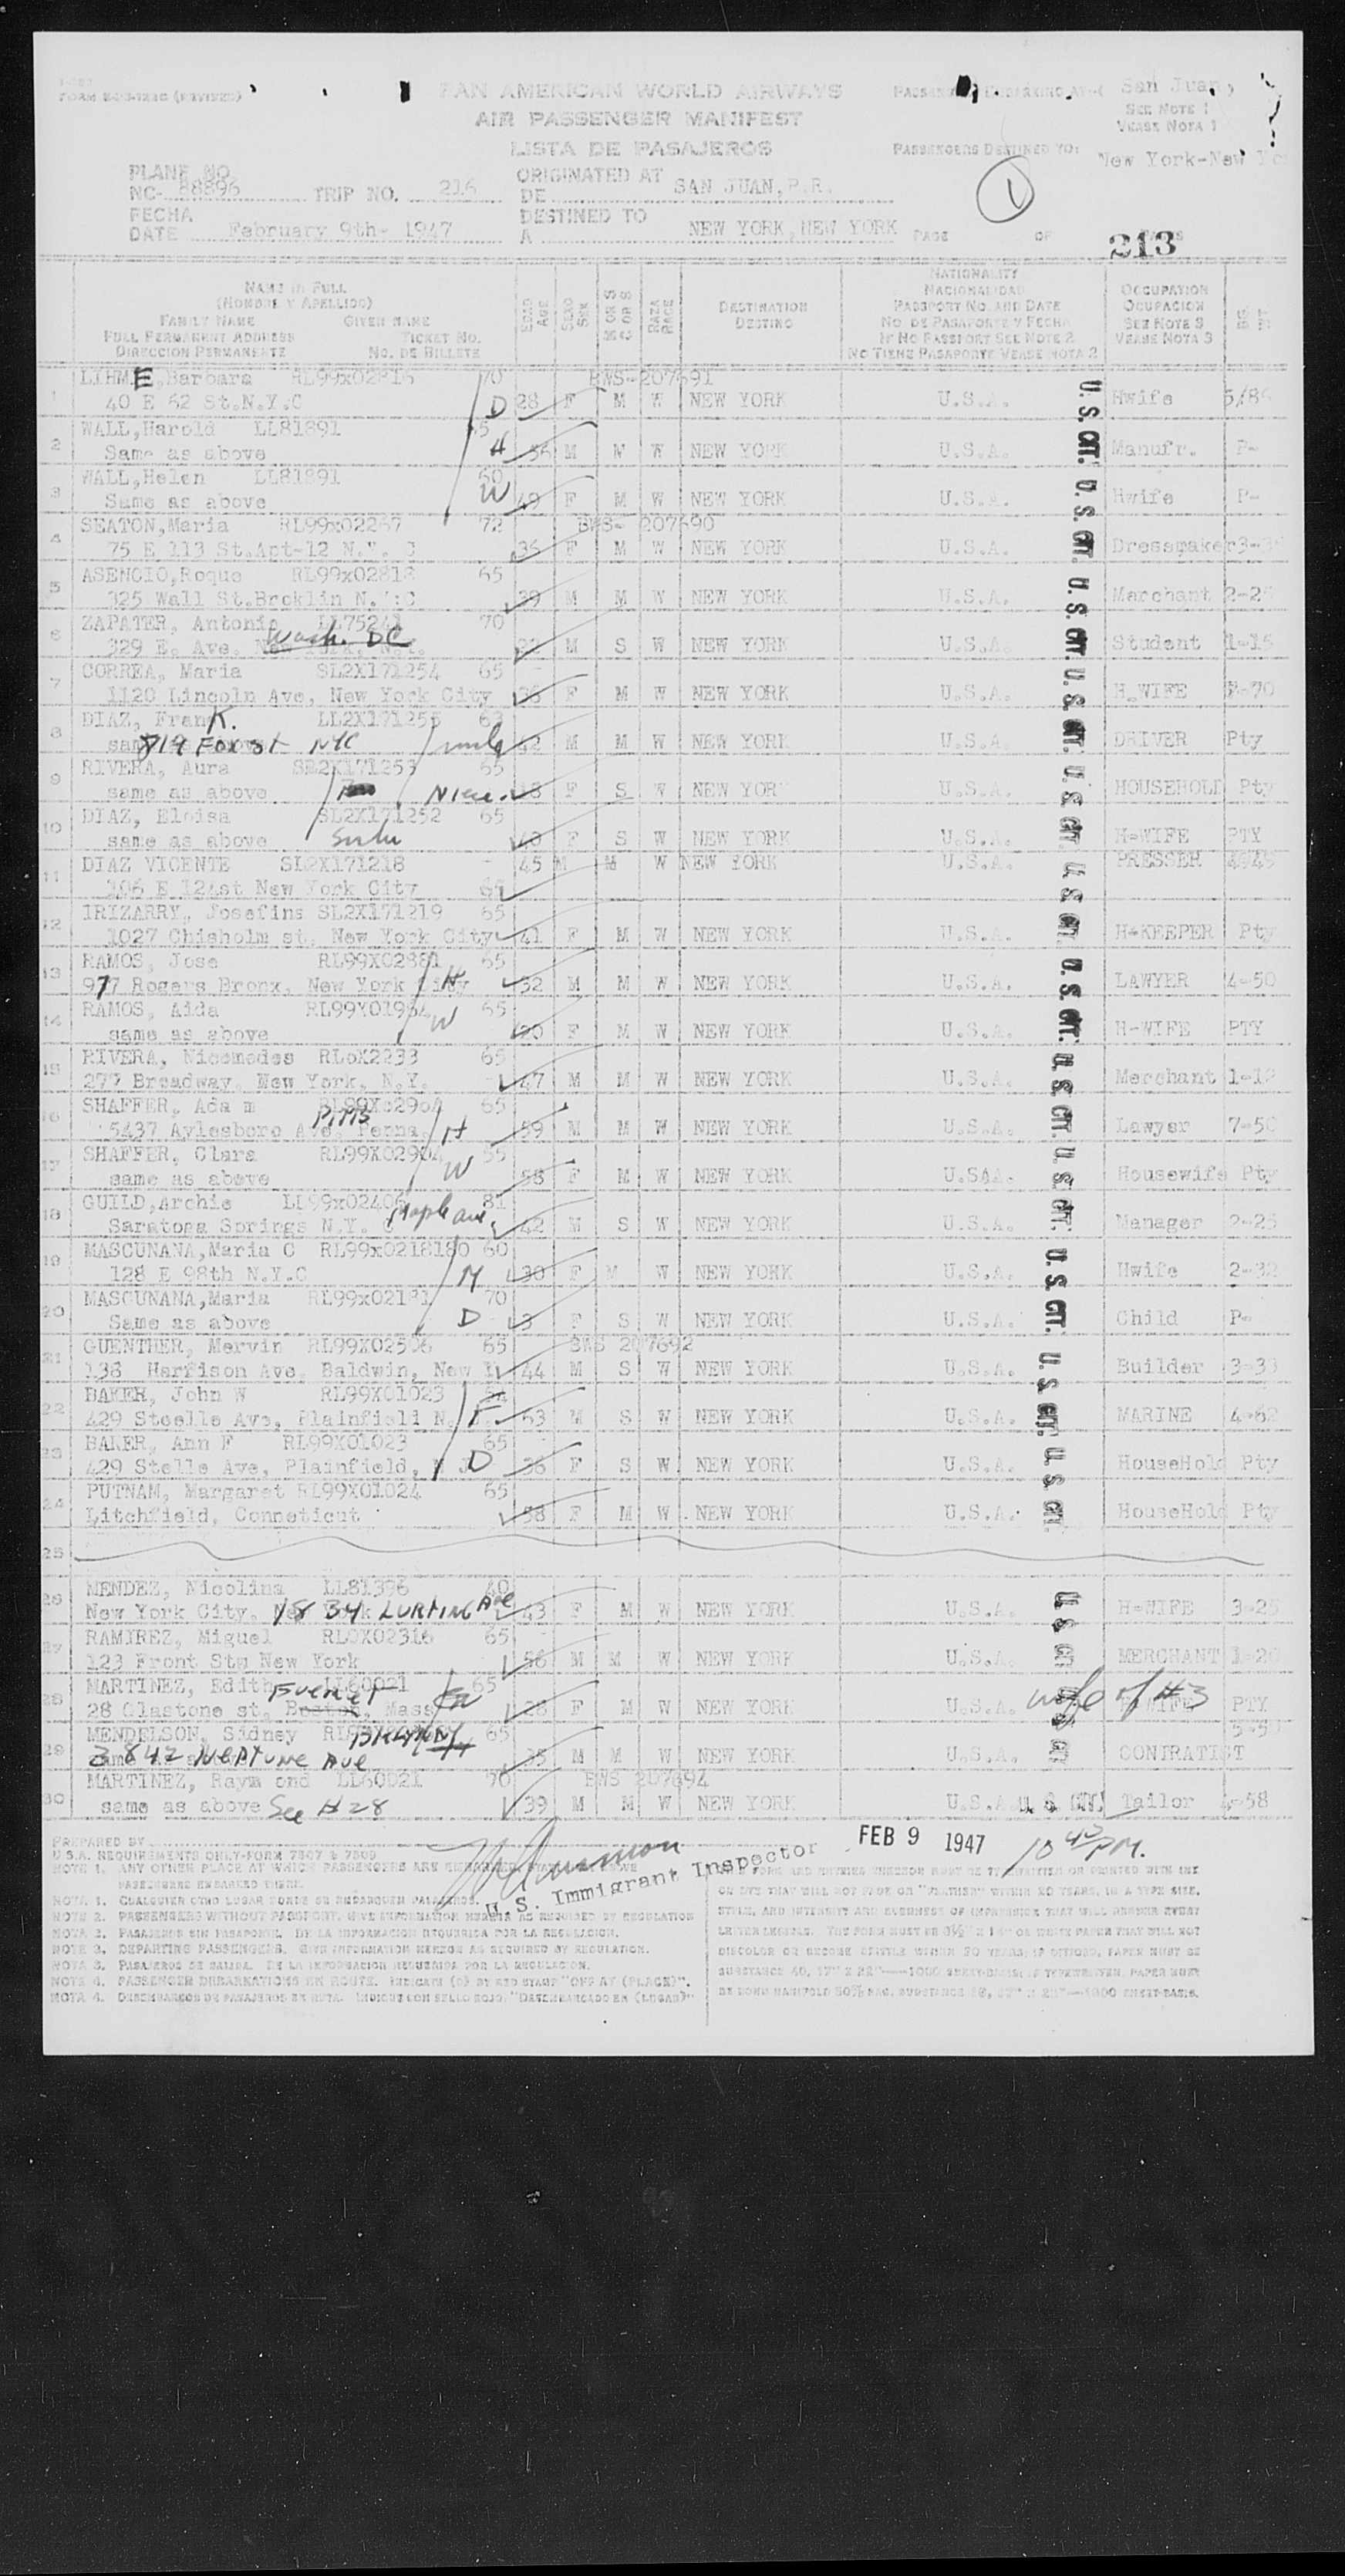 FORM
PAN AMERICAN WORLD AIRWAYS
AIR PASSENGER MANIFEST
LISTA DE PASAJEROS
San Juan,
SEE NOTE 1
VEASE NOTA 1
PASSENGERS DESTINED TO: New York-New
PLANE NO.
NC- 88896 TRIP NO. 216
ORIGINATED AT
DE SAN JUAN, P.R.
1
FECHA
DATE February 9th- 1947
DESTINED TO
A NEW YORK, NEW YORK PAGE OF
213
NAME IN FULL
(NOMBRE Y APELLIDO)
FAMILY NAME GIVEN NAME
FULL PERMANENT ADDRESS TICKET NO.
DIRECCION PERMANENTE NO. DE BILLETE
EDAD AGE
SEXO SEX
M OR S
C OR S
RAZA RACE
DESTINATION
DESTINO
NATIONALITY
NACIONALIDAD
PASSPORT NO. AND DATE
NO. DE PASAPORTE Y FECHA
IF NO PASSPORT SEE NOTE 2
NO TIENE PASAPORTE VEASE NOTA 2
OCCUPATION
OCUPACION
SEE NOTE 3
VEASE NOTA 3
1 LIHME, Barbara RL99x02815 70 BWS-207691
40 E 62 St. N.Y.C D 28 F M W NEW YORK U.S.A. Hwife
2 WALL, Harold LL81891
Same as above H 56 M M W NEW YORK U.S.A. Manufr. P-
3 WALL, Helen LL81891 60
Same as above W 49 F M W NEW YORK U.S.A. Hwife P-
4 SEATON, Maria RL99x02267 72 BWS- 207690
75 E 113 St. Apt-12 N.Y. C 36 F M W NEW YORK U.S.A. Dressmaker
5 ASENCIO, Roque RL99x02818 65
325 Wall St. Brcklin N. :C 39 M M W NEW YORK U.S.A. Marchant
6 ZAPATER, Antonio LL75241 70
329 E. Ave. New York, N.Y. Wash. DC M S W NEW YORK U.S.A. Student 1-15
7 CORREA, Maria SL2X171254 65
1120 Lincoln Ave, New York City 38 F M W NEW YORK U.S.A. H.WIFE
8 DIAZ, FranK. LL2X171255
819 Fox st NYC uncle 42 M M W NEW YORK U.S.A. DRIVER Pty
9 RIVERA, Aura SL2X171253 65
same as above Niece F S W NEW YOR U.S.A. HOUSEHOLD Pty
10 DIAZ, Eloisa SL2X171252 65
same as above Sister 40 F S W NEW YORK U.S.A. H-WIFE PTY
11 DIAZ VICENTE SL2X171218 45 M M W NEW YORK U.S.A. PRESSER
106 E 124st New York City 65
12 IRIZARRY, Josefina SL2X171219 65
1027 Chisholm st, New York City 41 F M W NEW YORK U.S.A. H-KEEPER Pty
13 RAMOS, Jose RL99X02881 65
977 Rogers Bronx, New York City H 32 M M W NEW YORK U.S.A. LAWYER 4-50
14 RAMOS, Aida RL99X01984 65
same as above W 20 F M W NEW YORK U.S.A. H-WIFE PTY
15 RIVERA, Nicomedes RLoX2233 65
277 Broadway, New York, N.Y. 47 M M W NEW YORK U.S.A. Merchant
16 SHAFFER, Ada m RL99Xo2904 65
5437 Aylesboro Ave, Penna. Pitts H 59 M M W NEW YORK U.S.A. Lawyer 7-50
17 SHAFFER, Clara RL99X02904 55
same as above W 58 F M W NEW YORK U.SAA. Housewife Pty
18 GUILD, Archie LL99x02406 81
Saratoga Springs N.Y. Maple ave 42 M S W NEW YORK U.S.A. Manager 2-25
19 MASCUNANA, Maria C RL99x0218180 60
128 E 98th N.Y.C M 30 F M W NEW YORK U.S.A. Hwife 2-32
20 MASCUNANA, Maria RL99x02181 70
Same as above D 3 F S W NEW YORK U.S.A. Child P-
21 GUENTHER, Mervin RL99X02506 65 BWS 207692
138 Harrison Ave, Baldwin, New Y 44 M S W NEW YORK U.S.A. Builder 3-33
22 BAKER, John W RL99X01023
429 Steelle Ave, Plainfield N. J. F 63 M S W NEW YORK U.S.A. MARINE 4-62
23 BAKER, Ann F RL99X01023 65
429 Stelle Ave, Plainfield, N J D 36 F S W NEW YORK U.S.A. HouseHold Pty
24 PUTNAM, Margaret RL99X01024 65
Litchfield, Conneticut 58 F M W NEW YORK U.S.A. HouseHold Pty
25
26 MENDEZ, Nicolina LL81396 40
New York City, 1834 LURTING Ave 43 F M W NEW YORK U.S.A. H-WIFE 3-25
27 RAMIREZ, Miguel RLOX02316 65
123 Front St, New York 56 M M W NEW YORK U.S.A. MERCHANT 1-20
28 MARTINEZ, Edith LL60021 65
28 Glastone st, Boston, Mass Everet W 28 F M W NEW YORK U.S.A. wife of #3 H-WIFE PTY
29 MENDELSON, Sidney BKLYN NY 65 5-50
3842 NEPTUNE Ave 35 M M W NEW YORK U.S.A. CONTRATIST
30 MARTINEZ, Raym ond LL60021 70 BWS 207694
same as above See #28 39 M M W NEW YORK U.S.A. U.S. CIT. Tailor 4-58
U. S. CIT.
PREPARED BY
U.S.A. REQUIREMENTS ONLY-FORM 7507 & 7509
U.S. Immigrant Inspector
FEB 9 1947 10 45 PM.
NOTE 1. ANY OTHER PLACE AT WHICH PASSENGERS ARE EMBARKED
PASSENGERS EMBARKED THERE.
NOTA 1. CUALQUIER OTRO LUGAR DONDE SE EMBARQUEN PASAJEROS.
NOTE 2. PASSENGERS WITHOUT PASSPORT, GIVE INFORMATION HEREIN AS REQUIRED BY REGULATION
NOTA 2. PASAJEROS SIN PASAPORTE. DE LA INFORMACION REQUERIDA POR LA REGULACION.
NOTE 3. DEPARTING PASSENGERS. GIVE INFORMATION HEREON AS REQUIRED BY REGULATION.
NOTA 3. PASAJEROS DE SALIDA. DE LA INFORMACION REQUERIDA POR LA REGULACION.
NOTE 4. PASSENGER DEBARKATIONS EN ROUTE. INDICATE (O) BY RED STAMP "OFF AT (PLACE)".
NOTA 4. DESEMBARCOS DE PASAJEROS EN RUTA. INDIQUE CON SELLO ROJO, "DESEMBARCADO EN (LUGAR)"
FORM AND ANYTHING THEREON MUST BE TYPEWRITTEN OR PRINTED WITH INK
OR DYE THAT WILL NOT FADE OR "FEATHER" WITHIN 20 YEARS, IN A TYPE SIZE,
STYLE, AND INTENSITY AND CLEARNESS OF IMPRESSION THAT WILL RENDER EVERY
LETTER LEGIBLE. THE FORM MUST BE 8½" X 14" OR WHITE PAPER THAT WILL NOT
DISCOLOR OR BECOME BRITTLE WITHIN 20 YEARS; IF DITTOED, PAPER MUST BE
SUBSTANCE 40, 17" X 22"—1000 SHEET-BASIS; IF TYPEWRITTEN, PAPER MUST